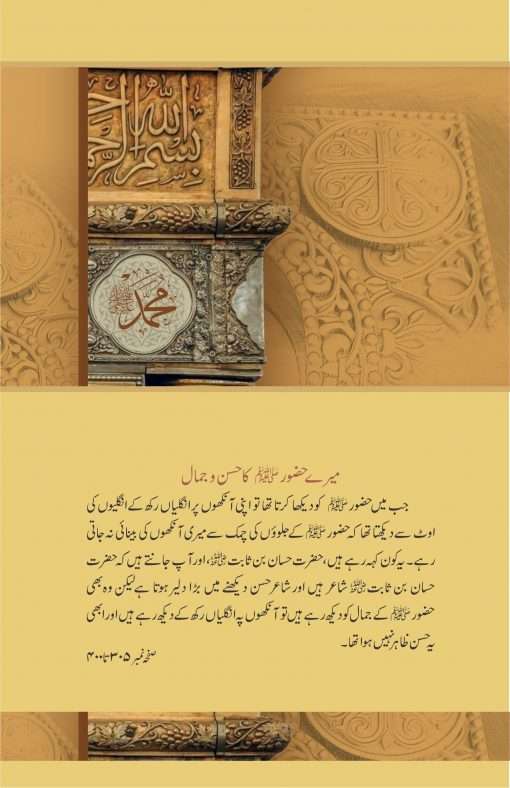 بسم الله الرحم
محمد ﷺ
میرے حضور ﷺ کا حسن و جمال
جب میں حضور ﷺ کو دیکھا کرتا تھا تو اپنی آنکھوں پر انگلیاں رکھ کے انگلیوں کی
اوٹ سے دیکھتا تھا کہ حضور ﷺ کے جلوؤں کی چمک سے میری آنکھوں کی بینائی نہ جاتی
رہے۔ یہ کون کہہ رہے ہیں، حضرت حسان بن ثابت ؓ، اور آپ جانتے ہیں کہ حضرت
حسان بن ثابت ؓ شاعر ہیں اور شاعر حسن دیکھنے میں بڑا دلیر ہوتا ہے لیکن وہ بھی
حضور ﷺ کے جمال کو دیکھ رہے ہیں تو آنکھوں پہ انگلیاں رکھ کے دیکھ رہے ہیں اور ابھی
یہ حسن ظاہر نہیں ہوا تھا۔
صفحہ نمبر ۳۰۵ تا ۴۰۰